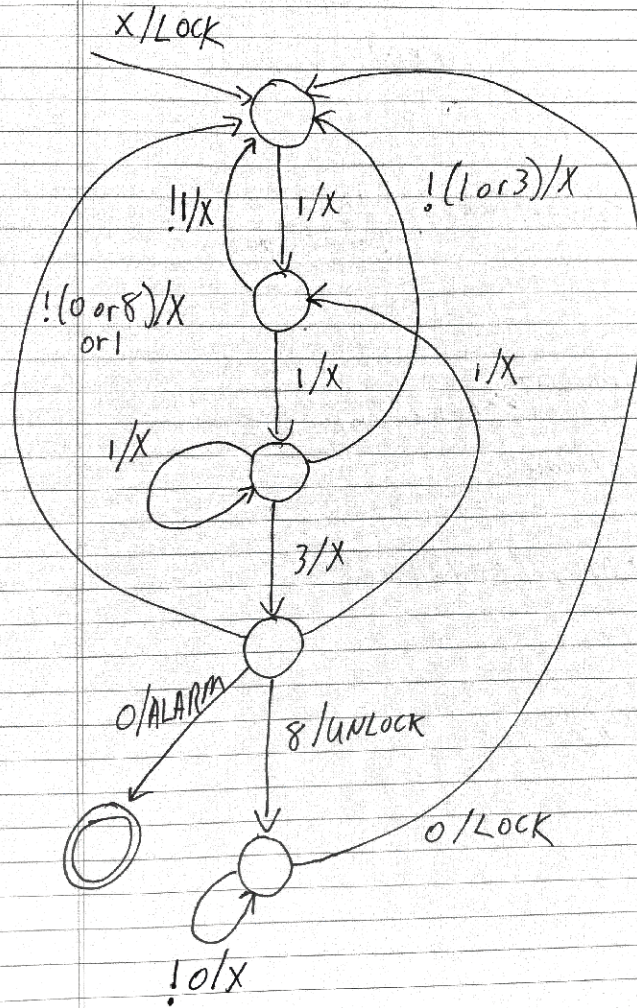 X/LOCK
!1/X
1/X
!(1 or 3)/X
!(0 or 8)/X
or 1
1/X
1/X
1/X
3/X
0/ALARM
8/UNLOCK
0/LOCK
!0/X